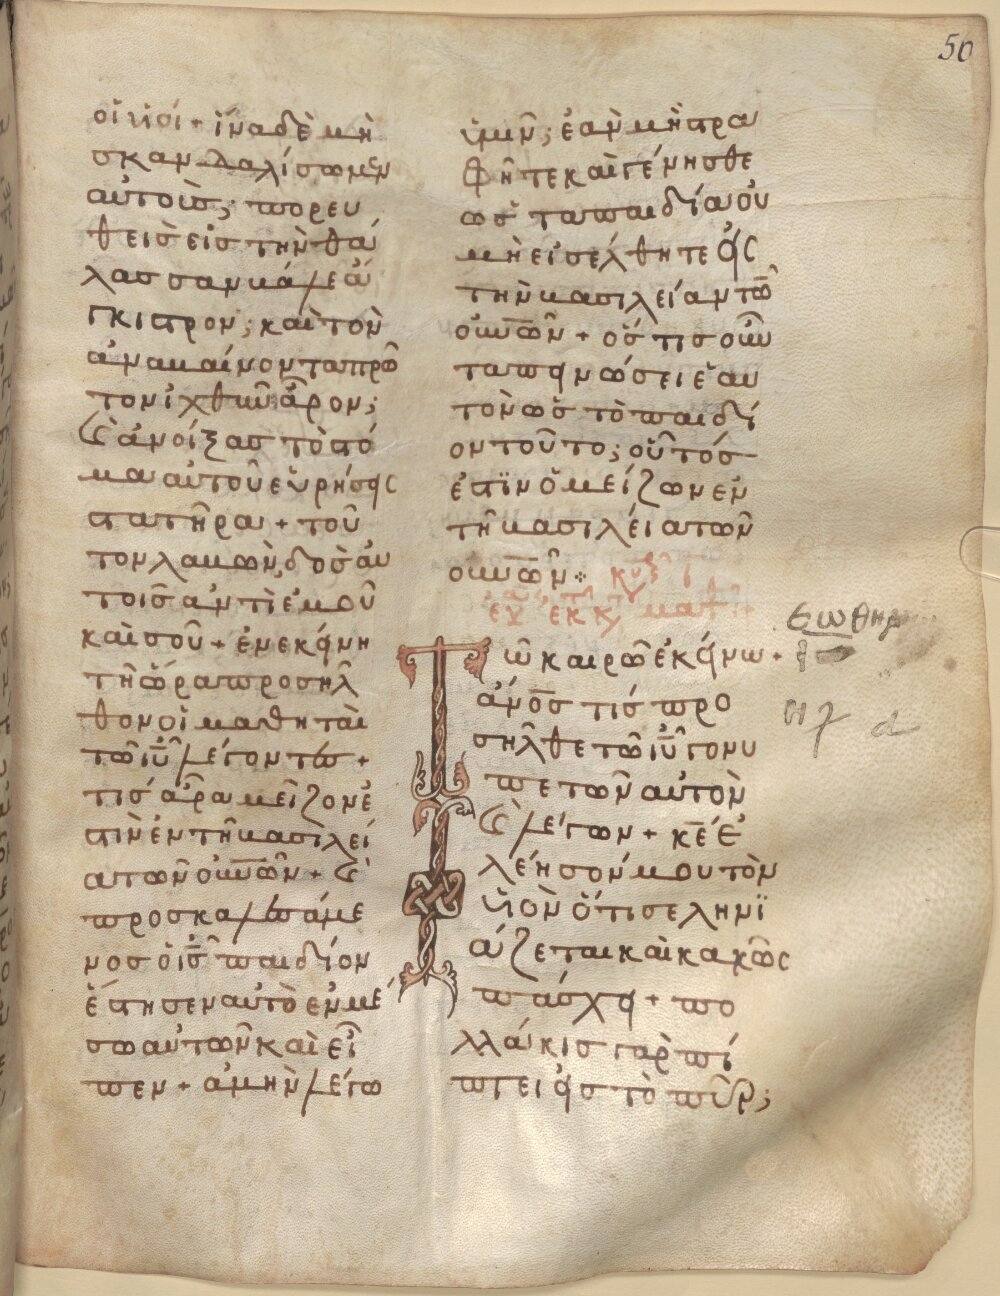 50
οἱ υἱοί + ἵνα δὲ μὴ
σκανδαλίσωμεν
αὐτοὺς; πορευ
θεὶς εἰς τὴν θά
λασσαν βάλε ἄ
γκιστρον; καὶ τὸν
ἀναβαίνοντα πρῶ
τον ἰχθῦν ἆρον;
καὶ ἀνοίξας τὸ στό
μα αὐτοῦ εὑρήσεις
στατῆρα + τοῦ
τον λαβὼν δὸς αὐ
τοῖς ἀντὶ ἐμοῦ
καὶ σοῦ + ἐν ἐκείνη
τῆ ὥρα προσῆλ
θον οἱ μαθηταὶ
τῶ ἰῦ λέγοντες +
τίς ἄρα μείζον ἐ
στὶν ἐν τῆ βασιλεί
α τῶν οὐνῶν + καὶ
προσκαλεσάμε
νος ὁ ἰς παιδίον
ἔστησεν αὐτὸ ἐν μέ
σω αὐτῶν καὶ εἶ
πεν + ἀμὴν λέγω
ὑμῖν; ἐὰν μὴ στρα
φῆτε καὶ γένησθε
ὡς τὰ παιδία οὐ
μὴ εἰσέλθητε εἰς
τὴν βασιλείαν τῶν
οὐνῶν + ὅστις οὖν
ταπεινώσει ἑαυ
τὸν ὡς τὸ παιδί
ον τοῦτο; οὗτός
ἐστιν ὁ μείζων ἐν
τῆ βασιλεία τῶν
οὐνῶν
Τῶ καιρῶ ἐκείνω +
ἀνός τίς προ
σῆλθε τῶ ἰῦ γονυ
πετῶν αὐτὸν
καὶ λέγων + κε ἐ
λέησόν μου τὸν
υἱὸν ὅτι σεληνι
άζεται καὶ κακῶς
πάσχει + πο
λλάκις γὰρ πί
πτει εἰς τὸ πῦρ;